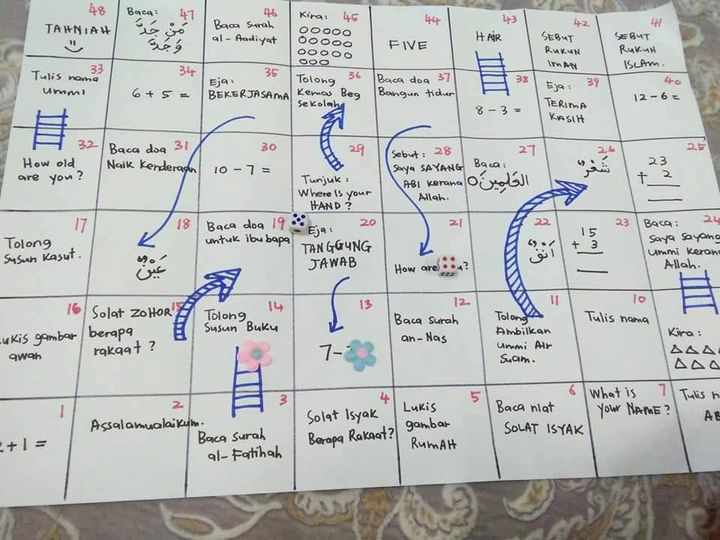 48
TAHNIAH
47
Baca:
مَنْ جَدَّ
وَجَدَ
46
Baca surah
al-Aadiyat
45
Kira:
44
FIVE
43
HAIR
42
SEBUT
RUKUN
IMAN
41
SEBUT
RUKUN
ISLAM.
33
Tulis nama
ummi
34
6 + 5 =
35
Eja:
BEKERJASAMA
36
Tolong
Kemas Beg
sekolah
37
Baca doa
Bangun tidur
38
8 - 3 =
39
Eja:
TERIMA
KASIH
40
12 - 6 =
32
How old
are you?
31
Baca doa
Naik Kenderaan
30
10 - 7 =
29
Tunjuk:
Where is your
HAND?
28
Sebut:
Saya SAYANG
ABI kerana
Allah.
27
Baca:
العَلَمِيْنَ
26
شَعْرٌ
25
23
+ 2
17
Tolong
Susun Kasut.
18
عَيْنٌ
19
Baca doa
untuk ibu bapa
20
Eja:
TANGGUNG
JAWAB
21
How are
22
اَنْفٌ
23
15
+ 3
24
Baca:
Saya sayang
ummi kerana
Allah.
16
Lukis gambar
awan
15
Solat ZOHOR
berapa
rakaat?
14
Tolong
Susun Buku
13
7-
12
Baca surah
an-Nas
11
Tolong
Ambilkan
Ummi Air
Suam.
10
Tulis nama
Kira:
1
+ 1 =
2
Assalamualaikum.
3
Baca surah
al-Fatihah
4
Solat Isyak
Berapa Rakaat?
5
Lukis
gambar
RUMAH
6
Baca niat
SOLAT ISYAK
7
What is
your NAME?
Tulis